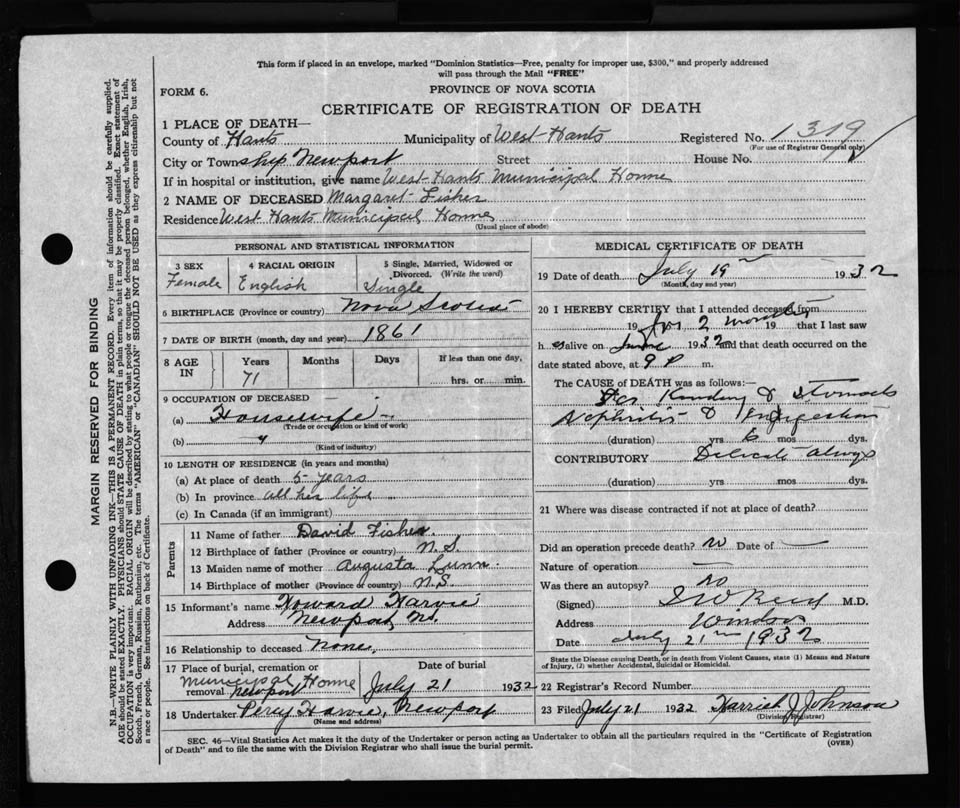 This form if placed in an envelope, marked "Dominion Statistics—Free, penalty for improper use, $300," and properly addressed
will pass through the Mail "FREE"
FORM 6.
PROVINCE OF NOVA SCOTIA
CERTIFICATE OF REGISTRATION OF DEATH
1 PLACE OF DEATH—
County of Hants Municipality of West Hants Registered No. 1319
(For use of Registrar General only)
City or Township Newport Street House No.
If in hospital or institution, give name West Hants Municipal Home
2 NAME OF DECEASED Margaret Fisher
Residence West Hants Municipal Home
(Usual place of abode)
PERSONAL AND STATISTICAL INFORMATION
3 SEX 4 RACIAL ORIGIN 5 Single, Married, Widowed or
Divorced. (Write the word)
Female English Single
6 BIRTHPLACE (Province or country) Nova Scotia
7 DATE OF BIRTH (month, day and year) 1861
8 AGE IN Years Months Days If less than one day,
71 hrs. or min.
9 OCCUPATION OF DECEASED
(a) Housewife
(Trade or occupation or kind of work)
(b) "
(Kind of industry)
10 LENGTH OF RESIDENCE (in years and months)
(a) At place of death 5 years
(b) In province all her life
(c) In Canada (if an immigrant)
Parents
11 Name of father David Fisher
12 Birthplace of father (Province or country) N.S.
13 Maiden name of mother Augusta Lunn
14 Birthplace of mother (Province or country) N.S.
15 Informant's name Howard Harvie
Address Newport, N.S.
16 Relationship to deceased None
17 Place of burial, cremation or removal Date of burial
Municipal Home
Newport July 21 1932
18 Undertaker Percy Harvie, Newport
(Name and address)
MEDICAL CERTIFICATE OF DEATH
19 Date of death July 19 1932
(Month, day and year)
20 I HEREBY CERTIFY that I attended deceased from
19 for 2 months 19 that I last saw
h er alive on June 1932 and that death occurred on the
date stated above, at 9 P m.
The CAUSE of DEATH was as follows:
Kidney & Stomach
Nephritis & Indigestion
(duration) yrs 6 mos dys.
CONTRIBUTORY Delicate always
(duration) yrs. mos. dys.
21 Where was disease contracted if not at place of death?
Did an operation precede death? no Date of —
Nature of operation —
Was there an autopsy? no
(Signed) Reid M.D.
Address Windsor
Date July 21 1932
State the Disease causing Death, or in death from Violent Causes, state (1) Means and Nature
of Injury, (2) whether Accidental, Suicidal or Homicidal.
22 Registrar's Record Number
23 Filed July 21 1932 Harriet J Johnson
(Division Registrar)
SEC. 46—Vital Statistics Act makes it the duty of the Undertaker or person acting as Undertaker to obtain all the particulars required in the "Certificate of Registration
of Death" and to file the same with the Division Registrar who shall issue the burial permit.
(OVER)
MARGIN RESERVED FOR BINDING
N.B.—WRITE PLAINLY WITH UNFADING INK—THIS IS A PERMANENT RECORD. Every item of information should be carefully supplied.
AGE should be stated EXACTLY. PHYSICIANS should STATE CAUSE OF DEATH in plain terms, so that it may be properly classified. Exact statement of
OCCUPATION is very important. RACIAL ORIGIN will be described by stating to what people or tongue the deceased person belonged, whether English, Irish,
Scotch, French, German, Russian, Ruthenian, etc. The terms "AMERICAN" or "CANADIAN" SHOULD NOT BE USED as they express citizenship but not
a race or people. See instructions on back of Certificate.